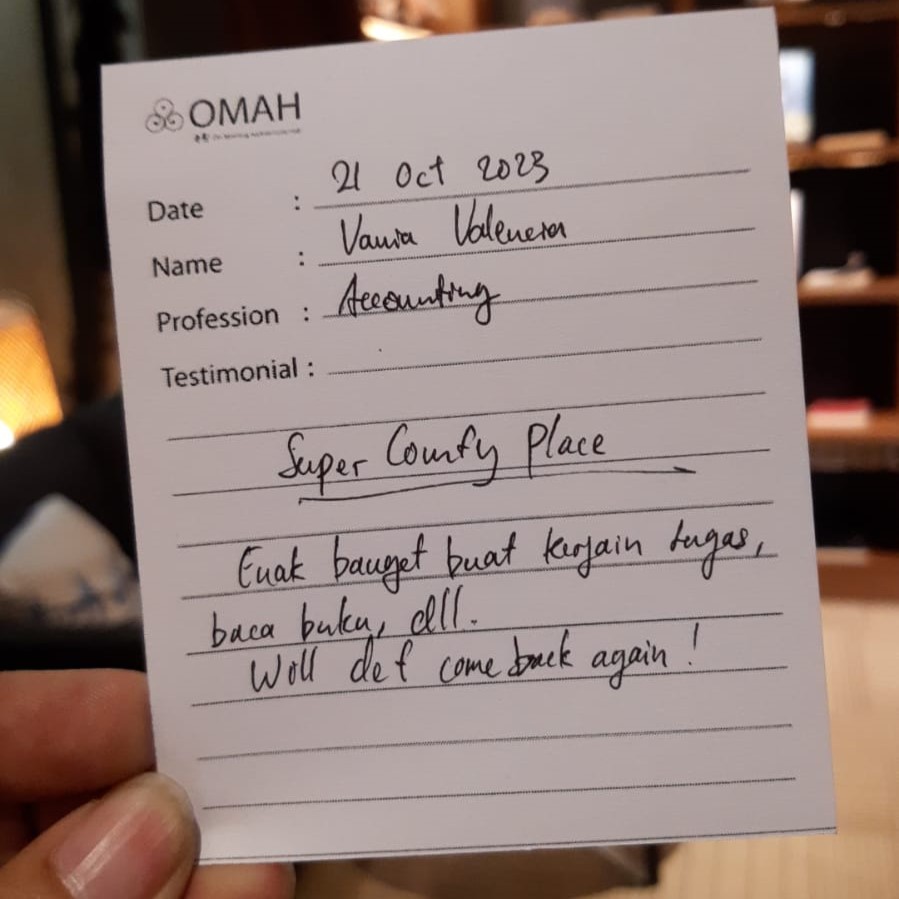 OMAH
Date : 21 Oct 2023
Name : Vania Valencia
Profession : Accounting
Testimonial :
Super Comfy Place
Enak banget buat kerjain tugas,
baca buku, dll.
Will def come back again!